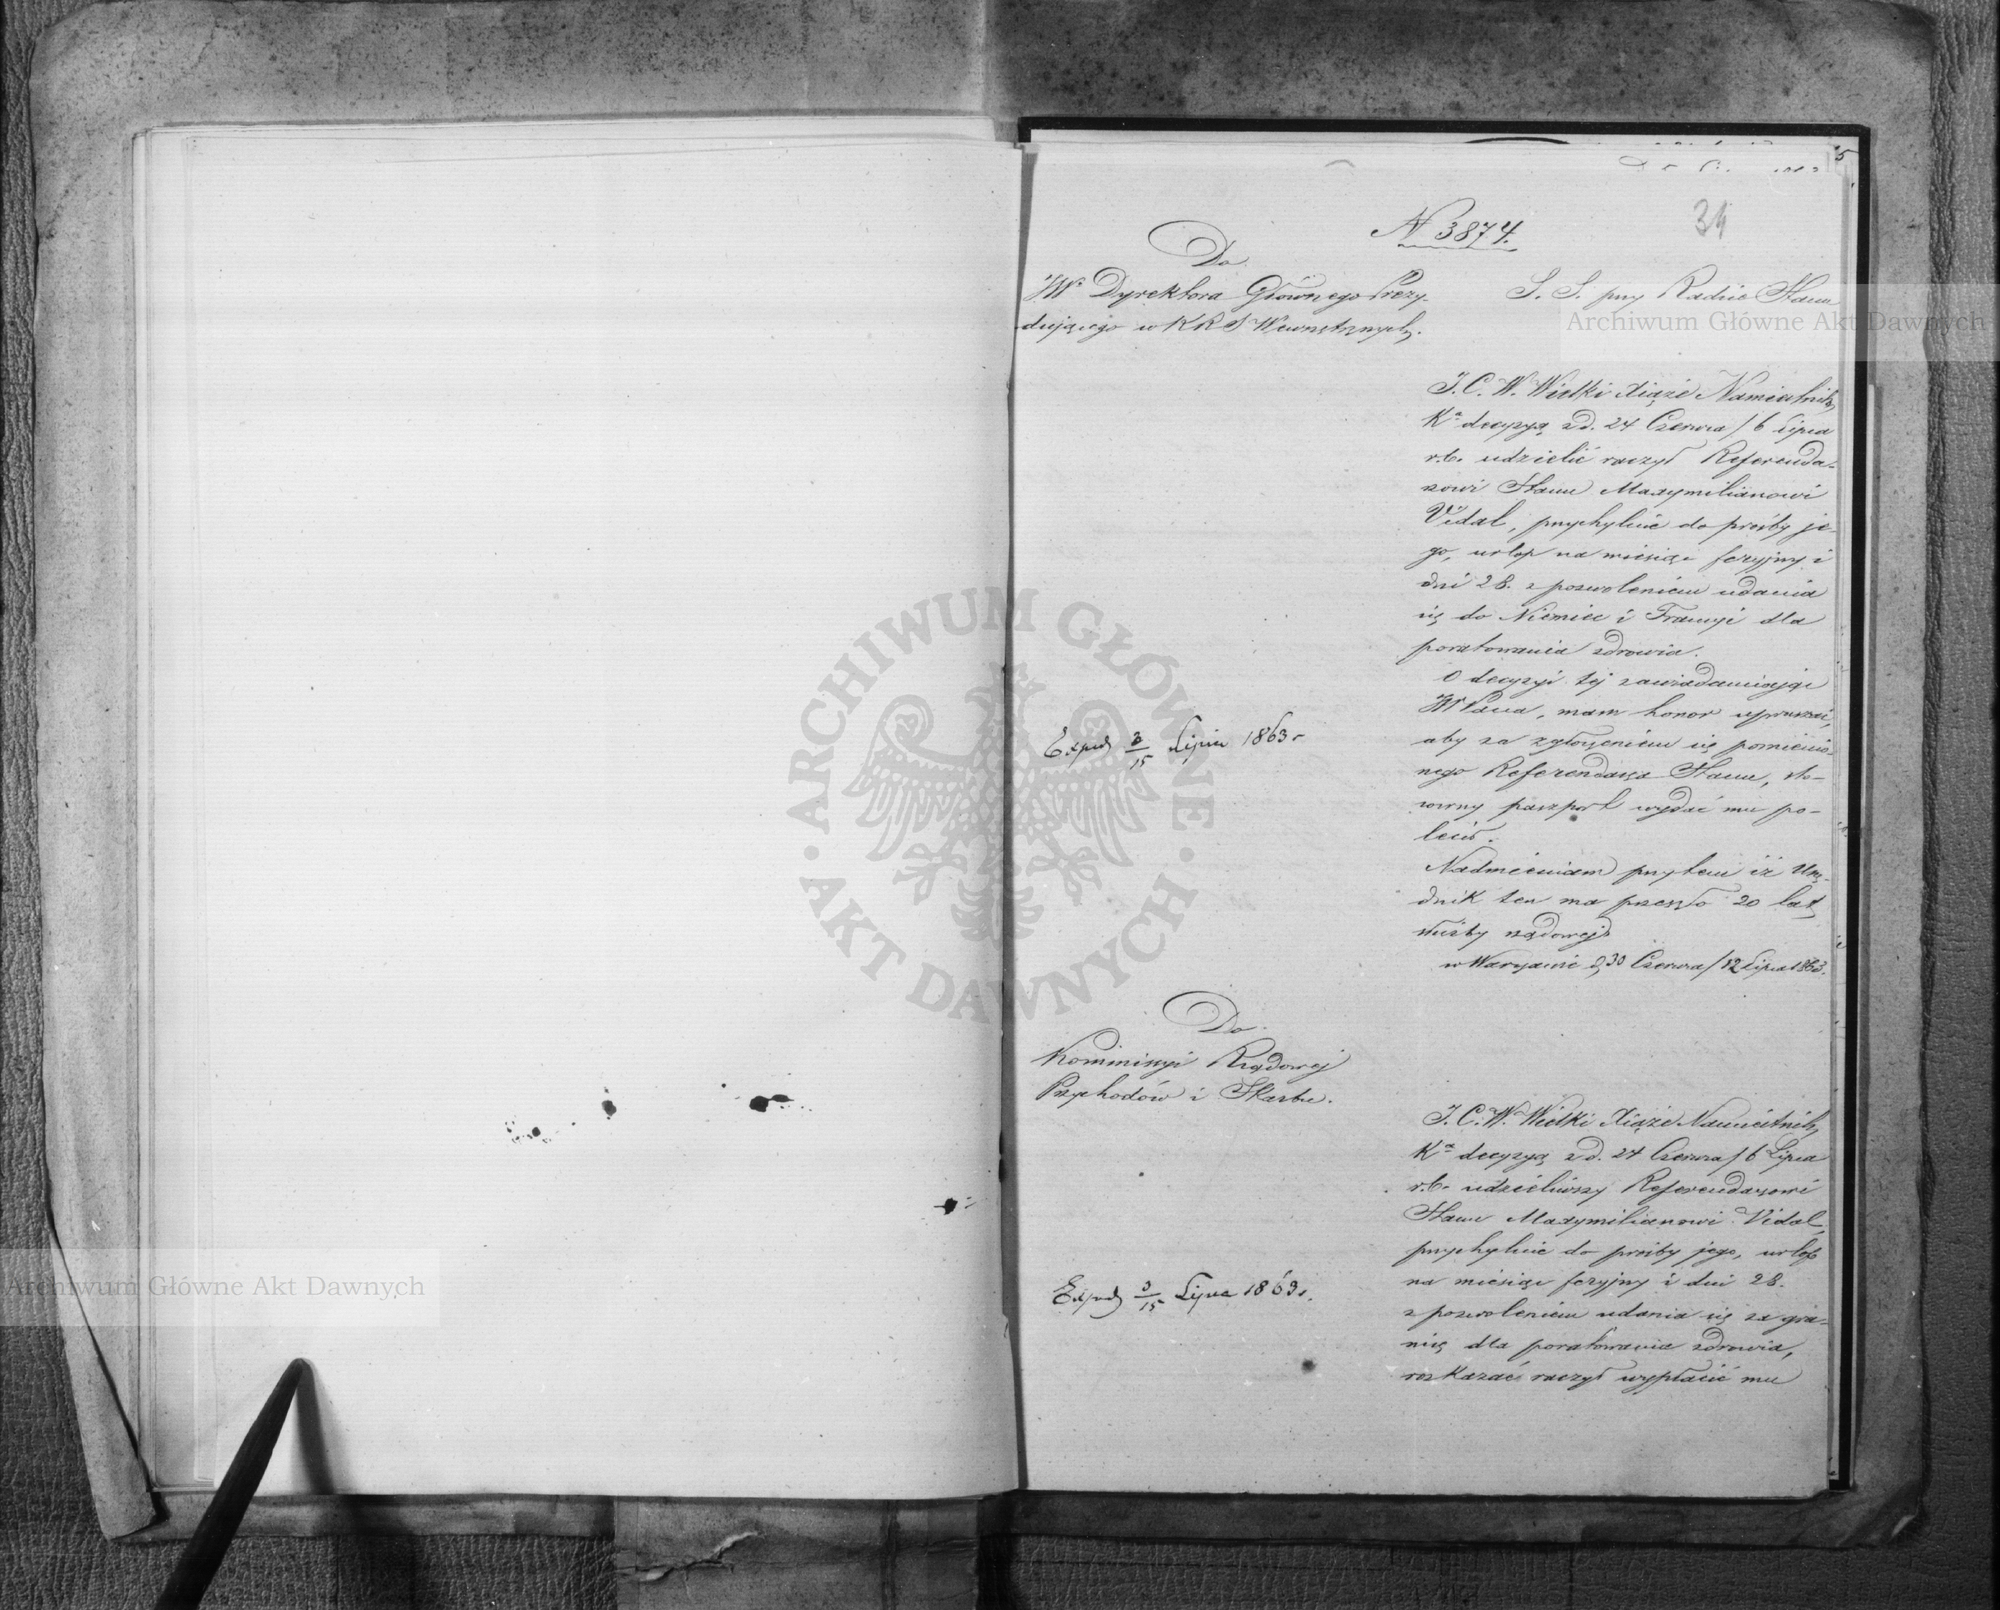 34
N 3874.
Do
JW Dyrektora Głównego Prezy-
dującego w KRS Wewnętrznych.
S. S. przy Radzie Stanu
J. C. W. Wielki Xiąże Namiestnik,
Kª decyzyą z d. 24 Czerwca / 6 Lipca
r. b. udzielić raczył Referenda-
rzowi Stanu Maxymilianowi
Vidal, przychylnie do prośby je-
go, urlop na miesiąc feryjny i
dni 28. z pozwoleniem udania
się do Niemiec i Francyi dla
poratowania zdrowia.
O decyzyi tej zawiadamiając
JW Pana, mam honor upraszać,
aby za zgłoszeniem się pomienio-
nego Referendarza Stanu, sto-
sowny paszport wydać mu po-
lecił.
Nadmieniam przytem iż Urzę-
dnik ten ma przeszło 20 lat
służby rządowej
w Warszawie d. 30 Czerwca / 12 Lipca 1863.
Exped 3/15 Lipca 1863 r
Do
Kommissyi Rządowej
Przychodów i Skarbu.
J. C. W. Wielki Xiąże Namiestnik,
Kª decyzyą z d. 24 Czerwca / 6 Lipca
r. b. udzieliwszy Referendarzowi
Stanu Maxymilianowi Vidal,
przychylnie do prośby jego, urlop
na miesiąc feryjny i dni 28.
z pozwoleniem udania się za gra-
nicę dla poratowania zdrowia,
rozkazać raczył wypłacić mu
Exped 3/15 Lipca 1863 r.
Archiwum Główne Akt Dawnych
Archiwum Główne Akt Dawnych
ARCHIWUM GŁÓWNE · AKT DAWNYCH ·